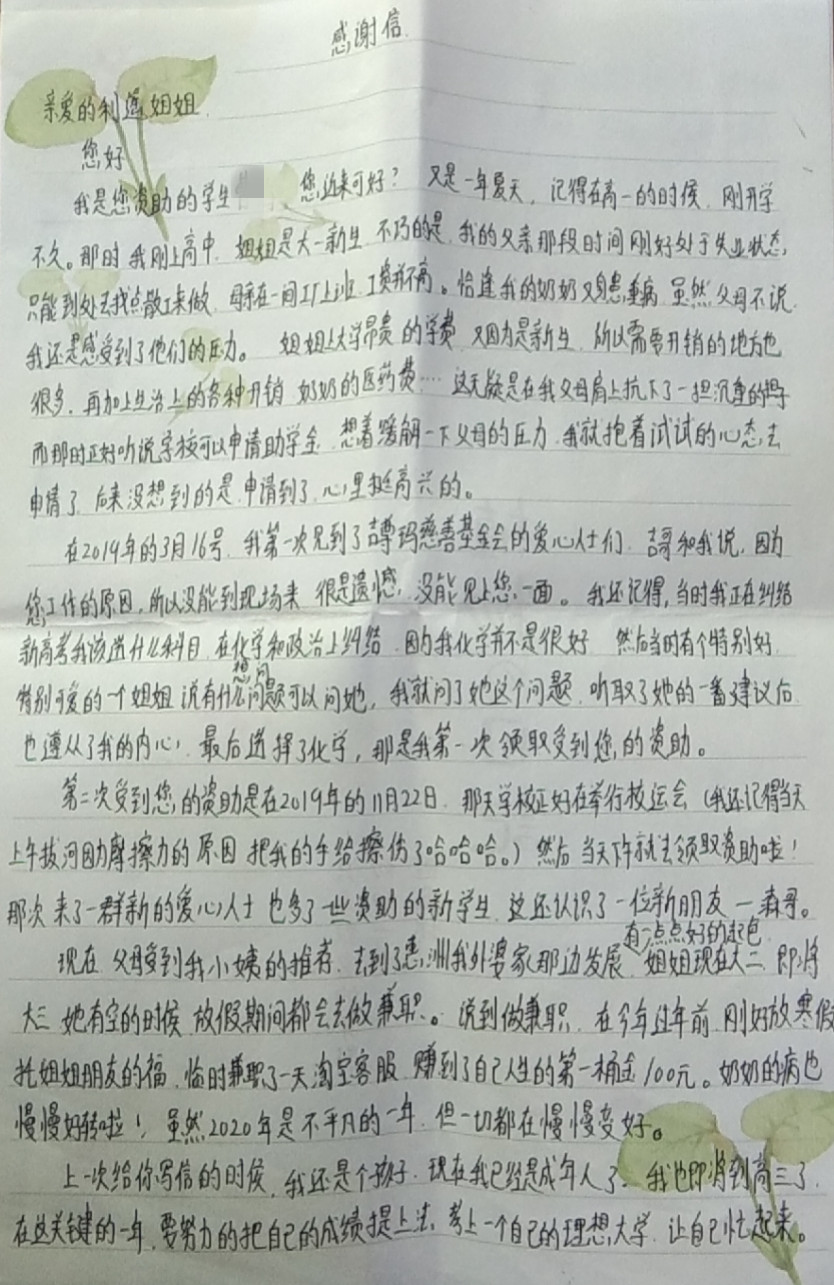 感谢信
亲爱的利莲姐姐
您好
我是您资助的学生 您近来可好？ 又是一年夏天，记得在高一的时候，刚开学
不久。那时我刚上高中，姐姐是大一新生，不巧的是，我的父亲那段时间刚好处于失业状态，
只能到处去找点散工来做，母亲在一间工厂上班，工资并不高。恰逢我的奶奶又身患重病，虽然父母不说，
我还是感受到了他们的压力。 姐姐上大学昂贵的学费，又因为是新生，所以需要开销的地方也
很多，再加上生活上的各种开销，奶奶的医药费…… 这无疑是在我父母肩上抗下了一担沉重的担子
而那时正好听说学校可以申请助学金，想着缓解一下父母的压力，我就抱着试试的心态去
申请了，后来没想到的是，申请到了，心里挺高兴的。
在2019年的3月16号，我第一次见到了吉尊玛慈善基金会的爱心人士们，吉哥和我说，因为
您工作的原因，所以没能到现场来，很是遗憾，没能见上您一面。我还记得，当时我正在纠结
新高考我该选什么科目，在化学和政治上纠结，因为我化学并不是很好，然后当时有个特别好
特别可爱的一个姐姐，说有什么想问问题可以问她，我就问了她这个问题，听取了她的一番建议后
也遵从了我的内心，最后选择了化学，那是我第一次领取受到您的资助。
第二次受到您的资助是在2019年的11月22日，那天学校正好在举行校运会（我还记得当天
上午拔河因为摩擦力的原因把我的手给擦伤了哈哈哈。）然后当天下午就去领取资助啦！
那次来了一群新的爱心人士，也多了一些资助的新学生，这还认识了一位新朋友——森哥。
现在，父母受到我小姨的推荐，去到了惠洲我外婆家那边发展，有一点点好的起色，姐姐现在大二，即将
大三，她有空的时候，放假期间都会去做兼职。说到做兼职，在今年过年前，刚好放寒假
托姐姐朋友的福，临时兼职了一天淘宝客服，赚到了自己人生的第一桶金100元。奶奶的病也
慢慢好转啦！虽然2020年是不平凡的一年，但一切都在慢慢变好。
上一次给你写信的时候，我还是个孩子，现在我已经是成年人了，我也即将到高三了，
在这关键的一年，要努力的把自己的成绩提上去，考上一个自己的理想大学，让自己忙起来。